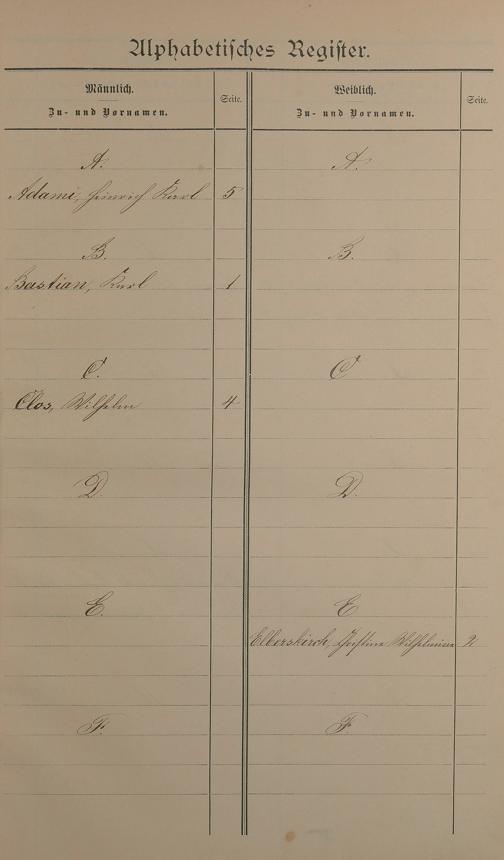 Alphabetisches Register.
Männlich.
Zu- und Vornamen.
Seite.
Weiblich.
Zu- und Vornamen.
Seite.
A.
A.
Adami, Heinrich Karl 5
B.
B.
Bastian, Karl 1
C.
C
Clos, Wilhelm 4
D.
D.
E.
E
Elberskirch, Christine Wilhelmine 2
F.
F